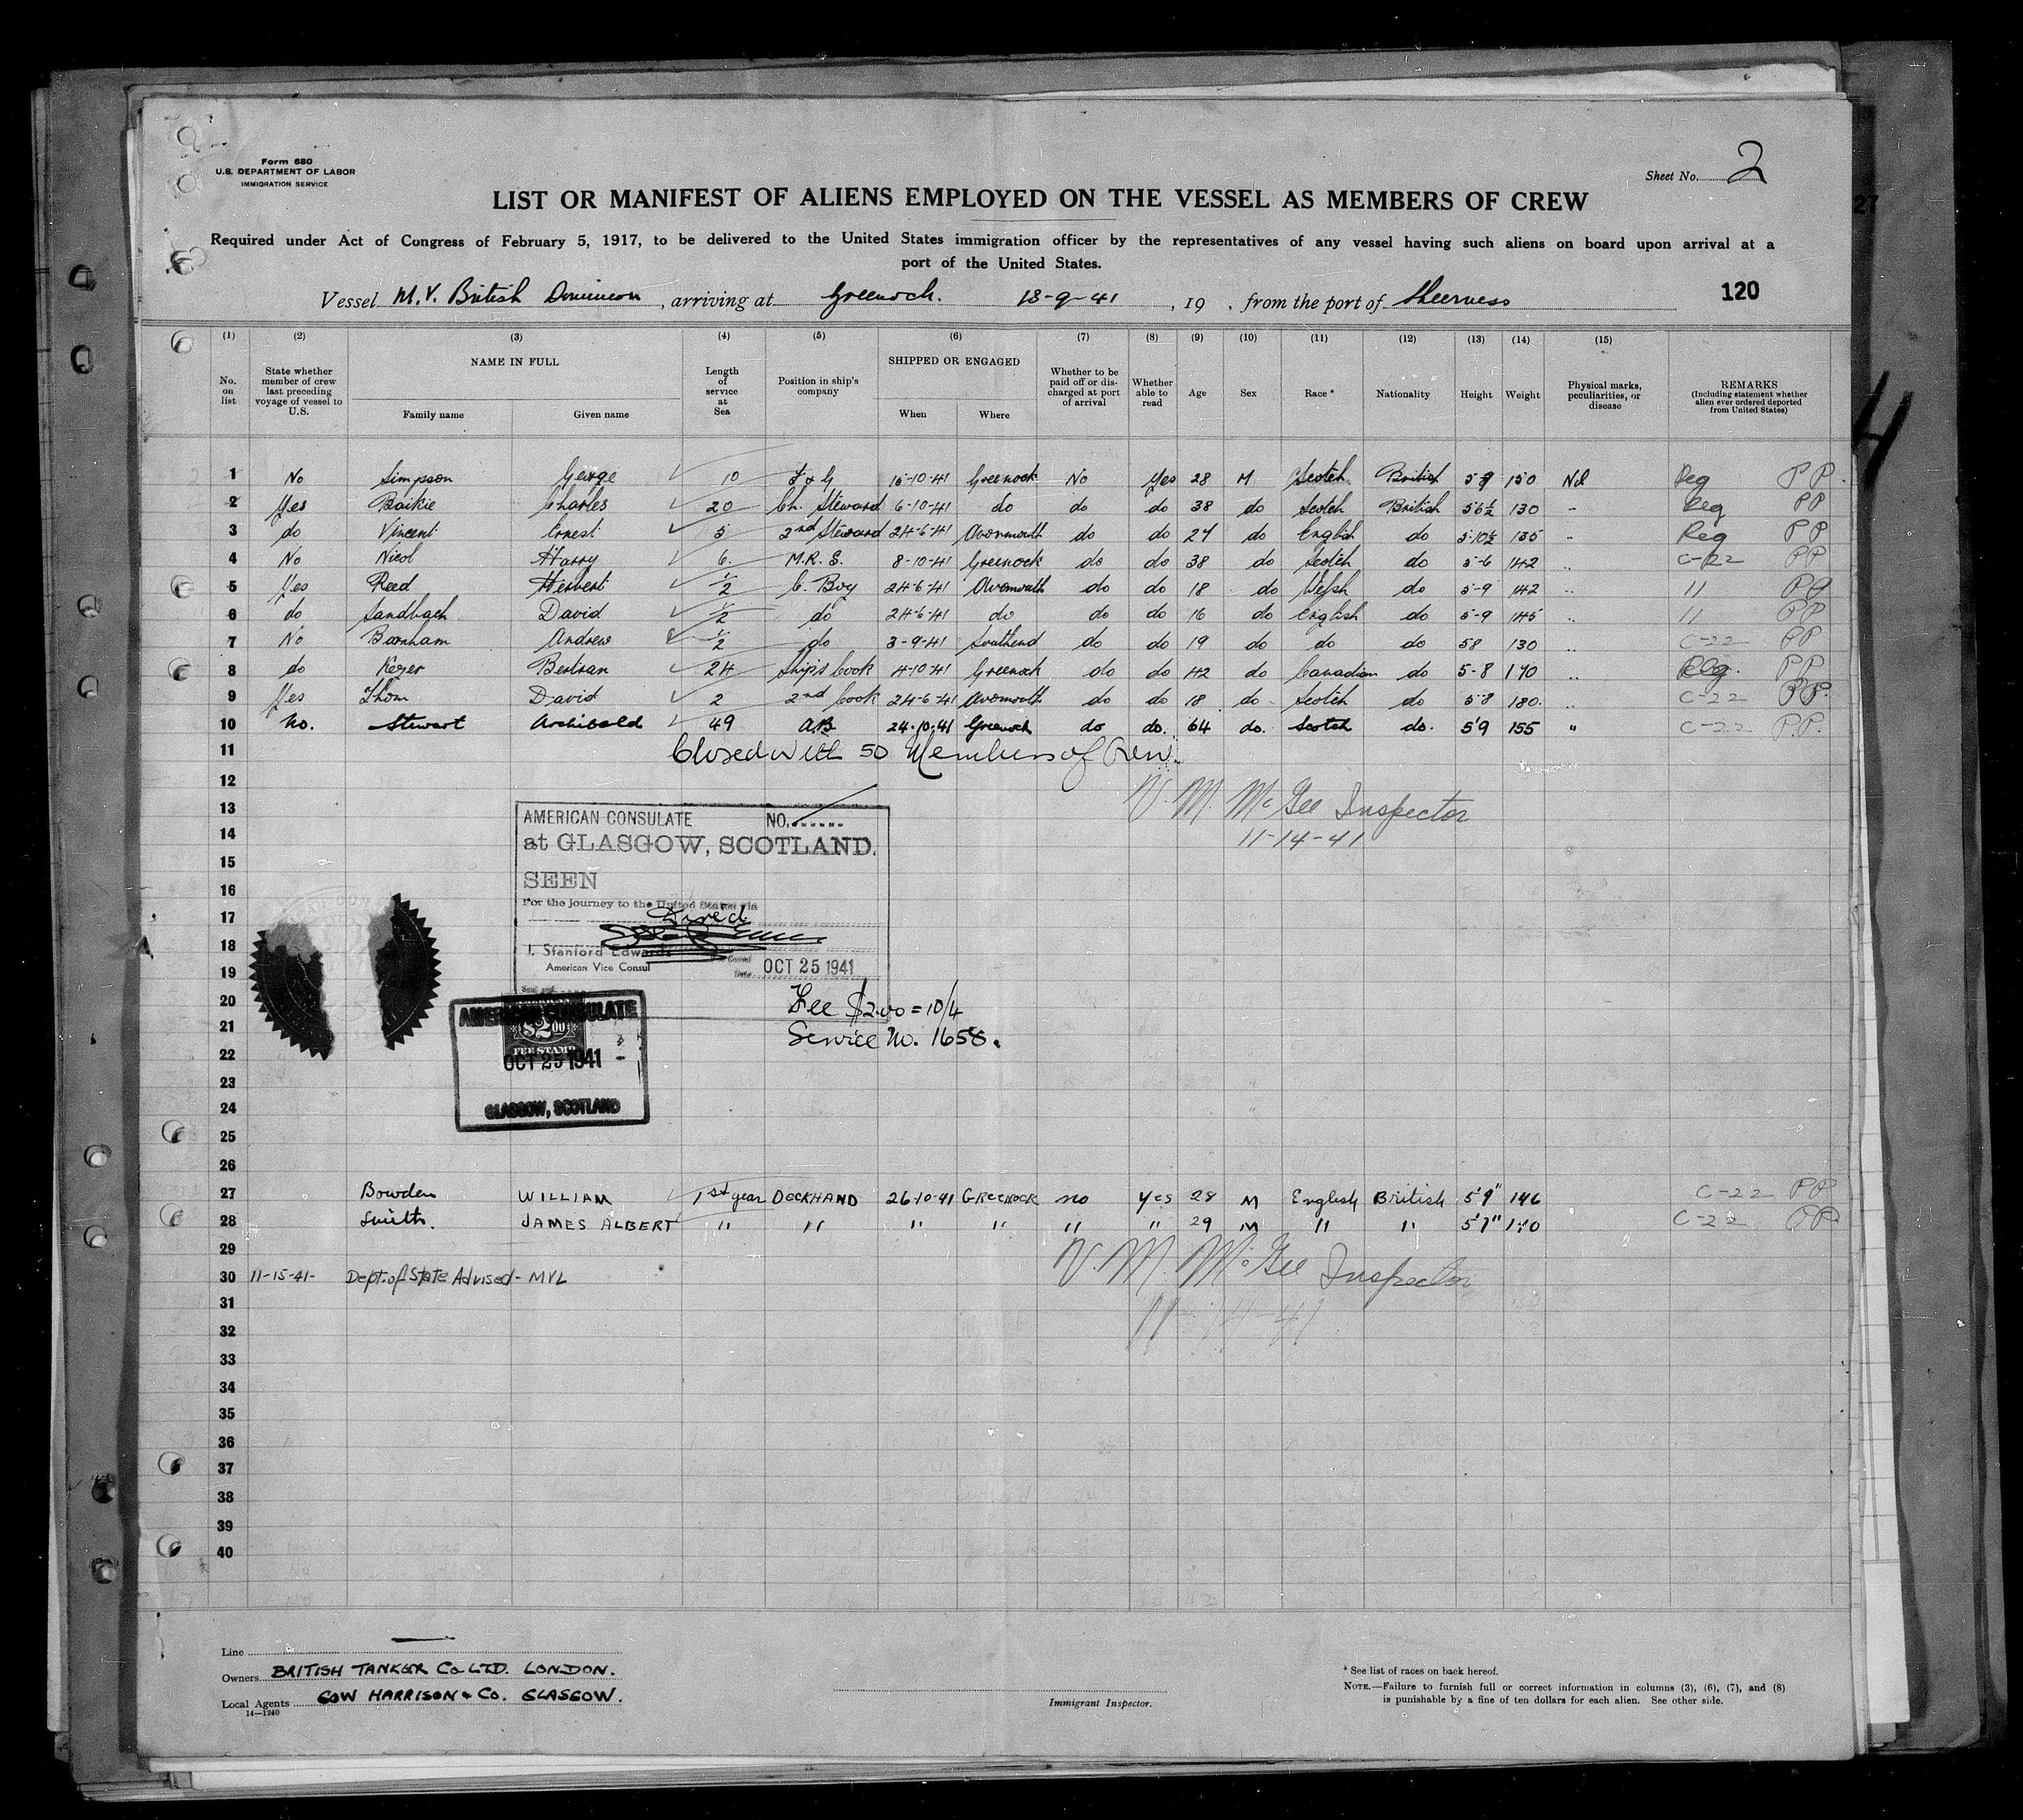 Form 680
U.S. DEPARTMENT OF LABOR
IMMIGRATION SERVICE
Sheet No. 2
LIST OR MANIFEST OF ALIENS EMPLOYED ON THE VESSEL AS MEMBERS OF CREW
Required under Act of Congress of February 5, 1917, to be delivered to the United States immigration officer by the representatives of any vessel having such aliens on board upon arrival at a
port of the United States.
Vessel M.V. British Dominion, arriving at Greenock. 13-9-41, 19 . from the port of Sheerness 120
(1) (2) (3) (4) (5) (6) (7) (8) (9) (10) (11) (12) (13) (14) (15)
No. on list State whether member of crew last preceding voyage of vessel to U.S. NAME IN FULL Family name Given name Length of service at Sea Position in ship's company SHIPPED OR ENGAGED When Where Whether to be paid off or discharged at port of arrival Whether able to read Age Sex Race* Nationality Height Weight Physical marks, peculiarities, or disease REMARKS (Including statement whether alien ever ordered deported from United States)
1 No Simpson George 10 15-10-41 Greenock No Yes 28 M Scotch British 5-9 150 Nil Reg PP.
2 Yes Baikie Charles 20 Ch. Steward 6-10-41 do do do 38 do Scotch British 5 6½ 130 - Reg PP
3 do Vincent Ernest 5 2nd Steward 24-6-41 Avonmouth do do 24 do English do 5-10½ 135 - Reg PP
4 No Nicol Harry 6. M.R.S. 8-10-41 Greenock do do 38 do Scotch do 5-6 142 .. C-22 PP
5 Yes Reed Herbert ½ C. Boy 24-6-41 Avonmouth do do 18 do Welsh do 5-9 142 .. 11 PP
6 do Sandbach David ½ do 24-6-41 do do do 16 do English do 5-9 145 .. 11 PP
7 No Barnham Andrew ½ do 3-9-41 Southend do do 19 do do do 58 130 C-22 PP
8 do Keyer Bertran 24 Ship's Cook 4-10-41 Greenock do do 42 do Canadian do 5-8 170 .. Reg. PP
9 Yes Thom David 2 2nd Cook 24-6-41 Avonmouth do do 18 do Scotch do 5-8 180. C-22 PP.
10 No. Stewart Archibald 49 A.B 24.10.41 Greenock do do. 64 do. Scotch do. 5'9 155 " C-22 P.P.
11 Closed with 50 Members of Crew.
12
13 V. M. McGee Inspector
14 11-14-41
AMERICAN CONSULATE NO.
at GLASGOW, SCOTLAND.
15
16 SEEN
For the journey to the United States via
17 Direct
18
I. Stanford Edwards
19 American Vice Consul Date OCT 25 1941
20 Fee $2.00 = 10/4
21 Service No. 1658.
AMERICAN CONSULATE
$2.00
FEE STAMP
22 OCT 25 1941
23
24 GLASGOW, SCOTLAND
25
26
27 Bowden WILLIAM 1st year DECKHAND 26-10-41 GREENOCK no Yes 28 M English British 5'9" 146 C-22 PP
28 Smith. JAMES ALBERT " " " " " " 29 M " " 5'7" 140 C-22 PP
29 V. M. McGee Inspector
30 11-15-41- Dept. of State Advised - MVL
31 11-14-41
32
33
34
35
36
37
38
39
40
Line
Owners BRITISH TANKER Co LTD. LONDON.
Local Agents GOW HARRISON & Co. GLASGOW.
14—1240
Immigrant Inspector.
* See list of races on back hereof.
NOTE.—Failure to furnish full or correct information in columns (3), (6), (7), and (8)
is punishable by a fine of ten dollars for each alien. See other side.